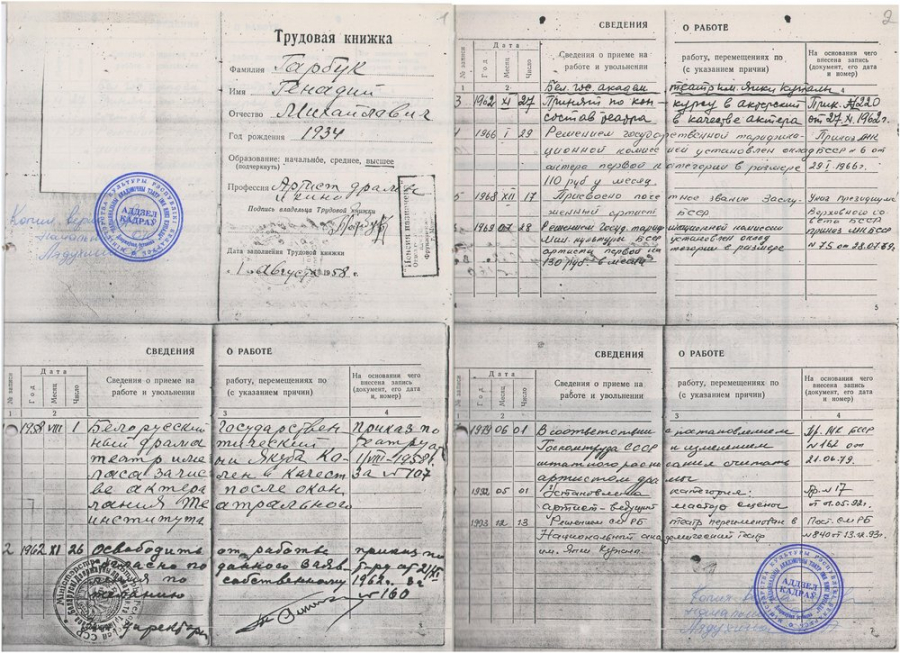 1
Трудовая книжка
Фамилия Гарбук
Имя Генадий
Отчество Михайлавич
Год рождения 1934
Образование: начальное, среднее, высшее
(подчеркнуть)
Профессия Артист драмы
и кино
Подпись владельца Трудовой книжки
Дата заполнения Трудовой книжки
1 Августа 1958 г.
АДДЗЕЛ
КАДРАЎ
Копия
2
СВЕДЕНИЯ О РАБОТЕ
№ записи Дата Сведения о приеме на работу, перемещениях по На основании чего
Год Месяц Число работе и увольнении (с указанием причин) внесена запись
(документ, его дата
и номер)
1 2 3 4
Бел. гос. академ. театр им. Янки Купалы
3 1962 XI 27 Принят по конкурсу в актерский Прик. №220
состав театра в качестве актера от 27.XI.1962г.
4 1966 I 29 Решением государственной тарификационной комиссией установлен оклад
актера первой категории в размере 29.I.1966г.
110 руб. в месяц.
5 1968 XII 17 Присвоено почетное звание Заслуженный артист БССР Указ Президиума
Верховного Совета БССР
1969 07 28 Решением Госуд. тарификационной комиссии приказ МК БССР
Мин. культуры БССР установлен оклад № 75 от 28.07.69г.
артиста первой категории в размере
130 руб. в месяц
3
СВЕДЕНИЯ О РАБОТЕ
№ записи Дата Сведения о приеме на работу, перемещениях по На основании чего
Год Месяц Число работе и увольнении (с указанием причин) внесена запись
(документ, его дата
и номер)
1 2 3 4
1 1958 VIII 1 Белорусский Государственный драматический Приказ по
театр имени Якуба Коласа зачислен театру
в качестве актера после окончания 1/VIII-1958г.
Театрального за №107
института
2 1962 XI 26 Освободить от работы приказ по
согласно поданного заявления т-ру от 21/XI
по собственному 1962г. за
желанию №160
Директор
СВЕДЕНИЯ О РАБОТЕ
№ записи Дата Сведения о приеме на работу, перемещениях по На основании чего
Год Месяц Число работе и увольнении (с указанием причин) внесена запись
(документ, его дата
и номер)
1 2 3 4
1979 06 01 В соответствии с постановлением Пр. МК БССР
Госкомтруда СССР и изменением №162 от
штатного расписания считать 21.06.79.
артистом драмы
1992 05 01 Установлена категория: Пр. № 17
артист-ведущий мастер сцены от 01.05.92г.
1993 12 13 Решением СМ РБ театр переименован в Пост. СМ РБ
Национальный академический театр №840 от 13.12.93г.
им. Янки Купала.
АДДЗЕЛ
КАДРАЎ
Копия